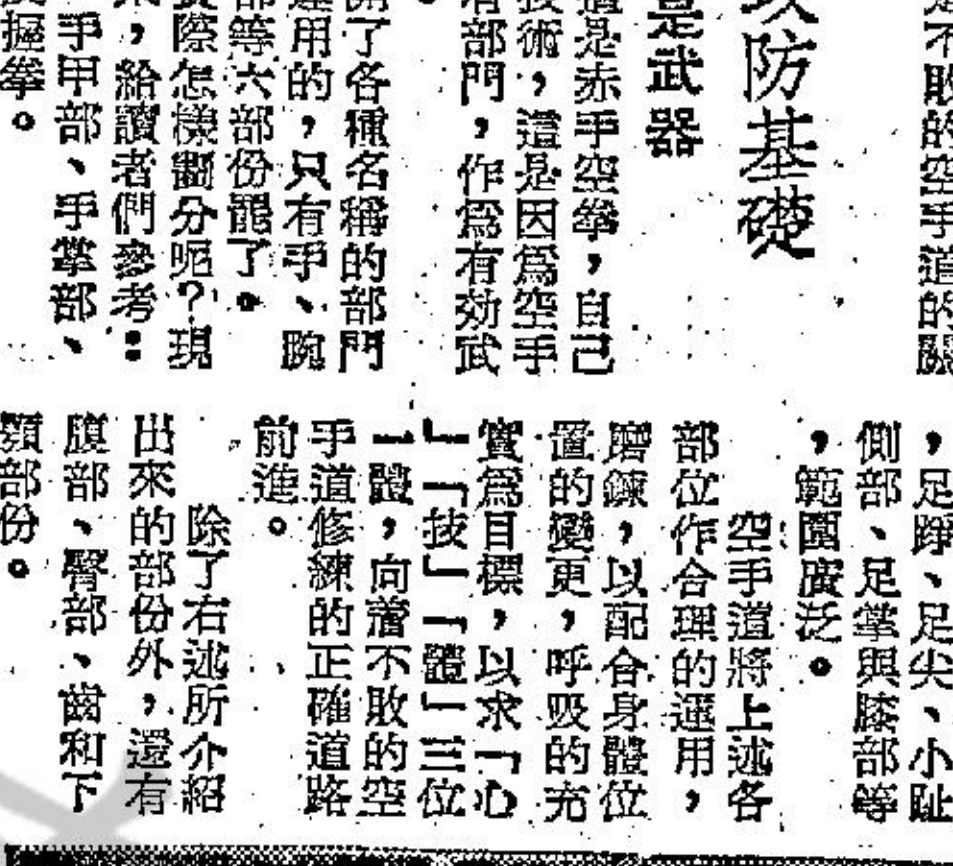 不敗的空手道的關
攻防基礎
是武器
是赤手空拳，自己
技術，這是因爲空手
部門，作爲有効武
。
開了各種名稱的部門
運用的，只有手、腕
部等六部份罷了。
實際怎樣劃分呢？現
，給讀者們參考：
手甲部、手掌部、
握拳。
，足踭、足尖、小趾
側部、足掌與膝部等
，範圍廣泛。
空手道將上述各
部位作合理的運用，
磨鍊，以配合身體位
置的變更，呼吸的充
實爲目標，以求「心
」「技」「體」三位
一體，向着不敗的空
手道修練的正確道路
前進。
除了右述所介紹
出來的部份外，還有
腹部、臀部、齒和下
顎部份。